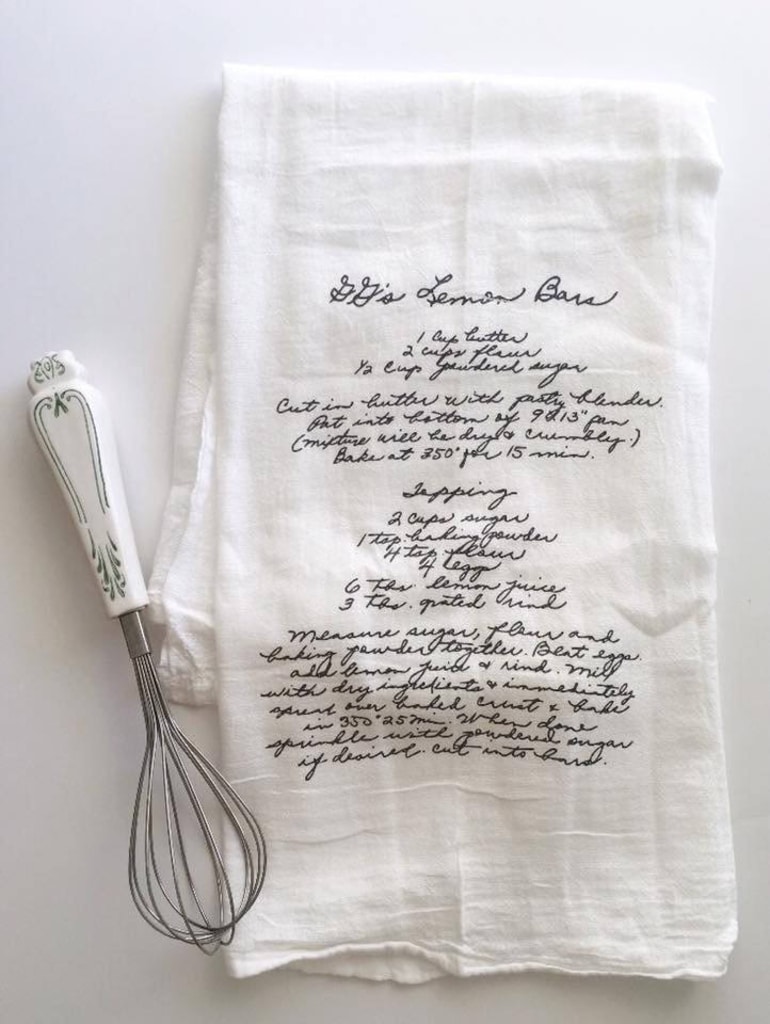 GG's Lemon Bars
1 Cup butter
2 cups flour
1/2 Cup powdered sugar
Cut in butter with pastry blender.
Pat into bottom of 9x13" pan
(mixture will be dry & crumbly.)
Bake at 350° for 15 min.
Topping
2 cups sugar
1 tsp. baking powder
4 tsp flour
4 eggs
6 Tbs. lemon juice
3 Tbs. grated rind
Measure sugar, flour and
baking powder together. Beat eggs.
add lemon juice & rind. Mix
with dry ingredients & immediately
spread over baked crust & bake
in 350° 25 min. When done
sprinkle with powdered sugar
if desired. cut into bars.